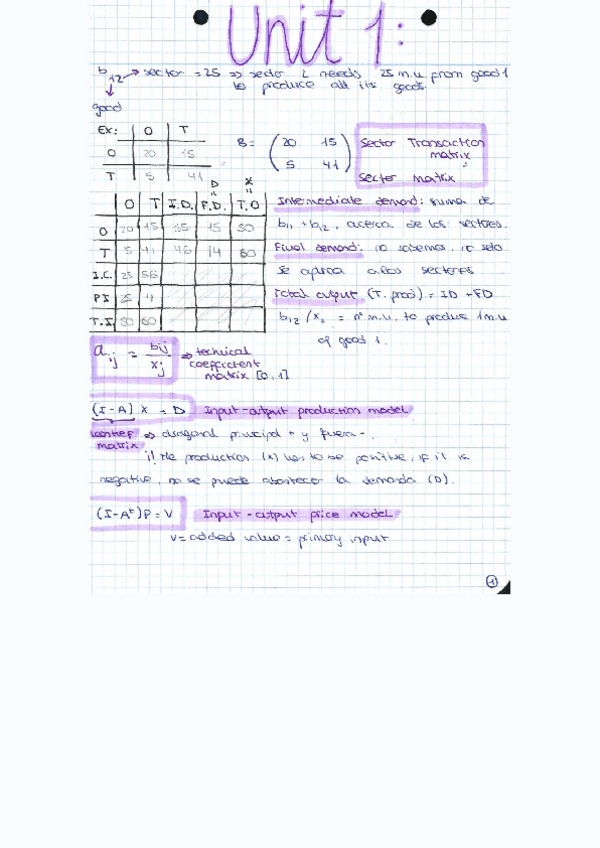 Unit 1:
b12 → sector = 25 ⇒ sector 2 needs 25 m.u from good 1
to produce all its goods.
good
Ex: O T
O 20 15
T 5 41
B = ( 20 15
5 41 )
Sector Transaction
matrix
Sector matrix
D X
O T I.D. F.D. T.O
O 20 15 35 15 50
T 5 41 46 14 60
I.C. 25 56
PI 25 4
T.I. 50 60
Intermediate demand: suma de
b11 + b12, acerca de los sectores.
Final demand: no sabemos, no solo
se aplica a los sectores
Total output (T. prod) = ID + FD
b12/x2 = nº m.u. to produce 1 m.u
of good 1.
aij = bij/xj ⇒ technical
coefficient
matrix [0,1]
(I-A) X = D Input-output production model
Leontief ⇒ diagonal principal + y fuera -.
matrix
!! the production (x) has to be positive, if it is
negative, no se puede abastecer la demanda (D).
(I-Aᵗ)P = V Input-output price model
V = added value = primary input
1